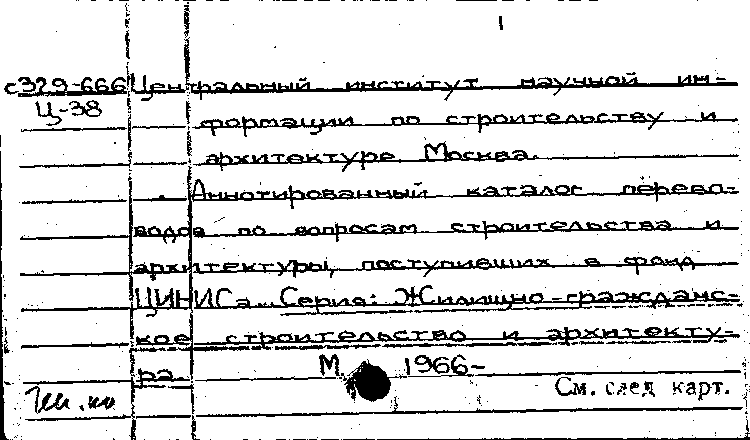 1
с329-666 Центральный институт научной ин-
Ц-38 формации по строительству и
архитектуре. Москва.
Аннотированный каталог перево-
водов по вопросам строительства и
архитектуры, поступивших в фонд
ЦИНИСа. Серия: Жилищно-гражданс-
кое строительство и архитекту-
ра. М. 1966-
См. след карт.